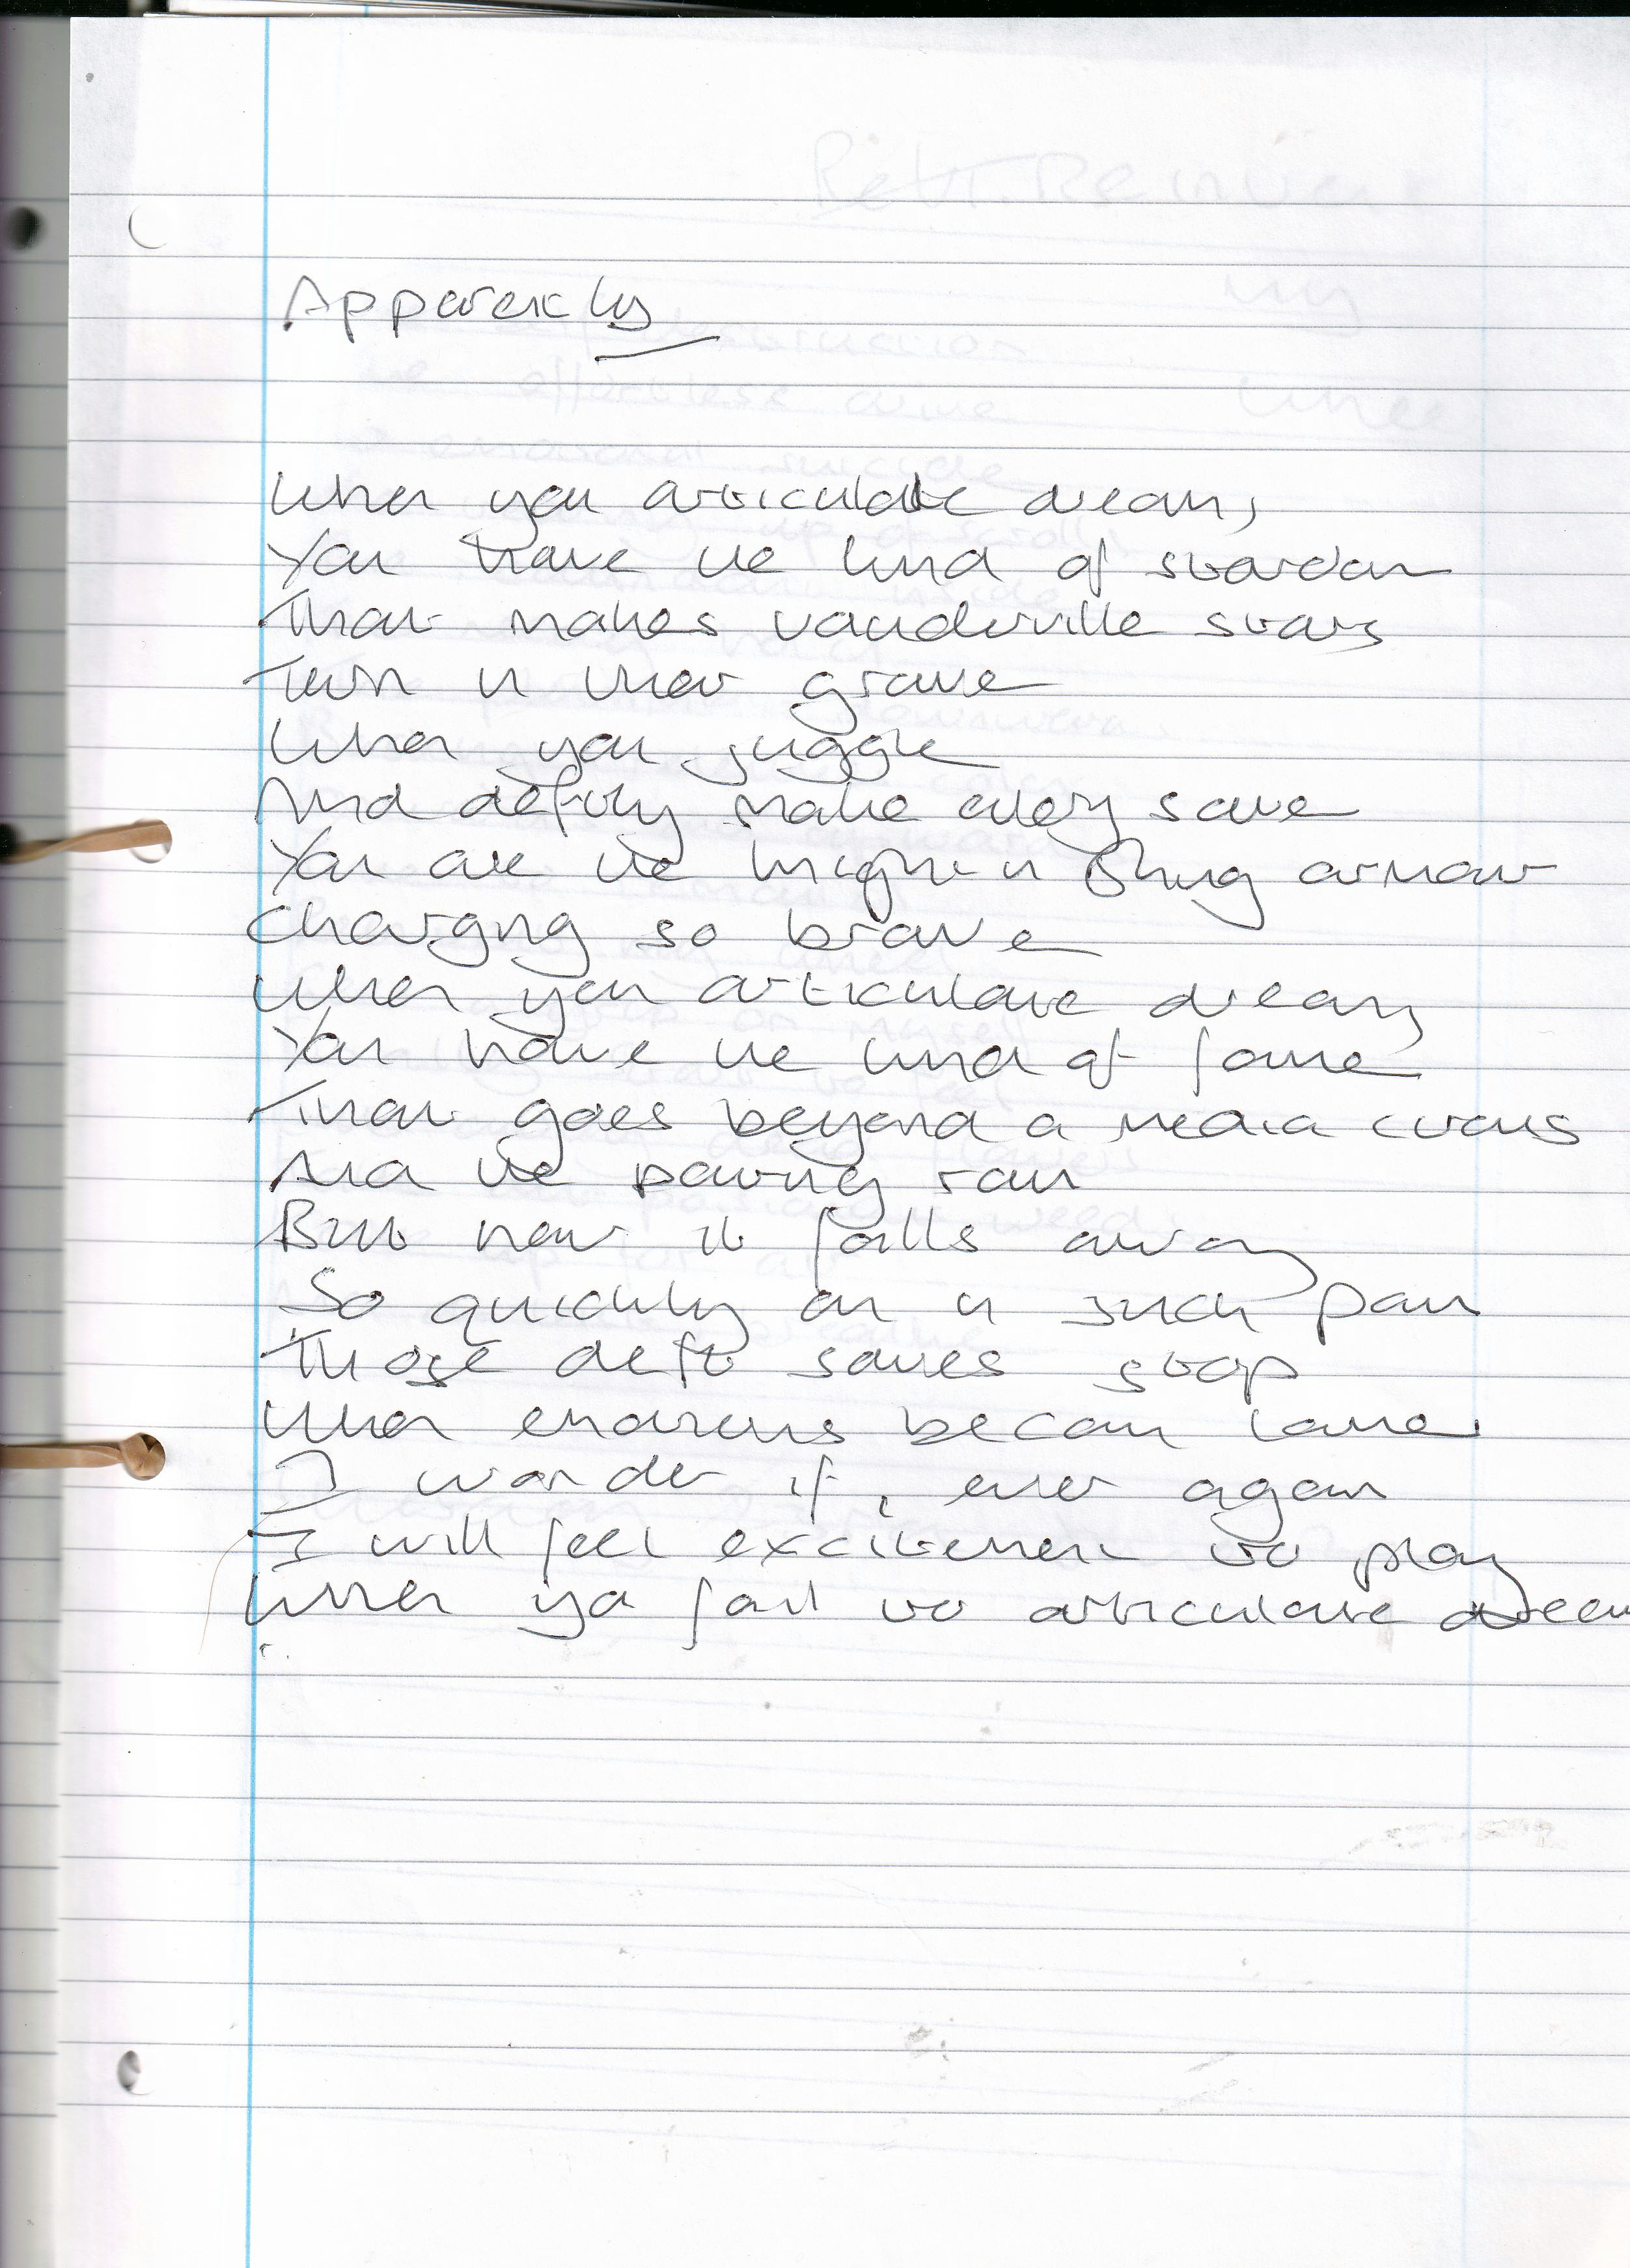 Apparently
When you articulate dreams
You have the kind of stardom
That makes vaudeville stars
Turn in their grave
When you juggle
And deftly make every save
You are the knight in shining armour
Charging so brave
When you articulate dreams
You have the kind of fame
That goes beyond a media circus
And the pouring rain
But now it falls away
So quickly on in such pain
Those deft saves stop
When become lame
I wonder if, ever again
I will feel excitement to play
When ya fail to articulate dream